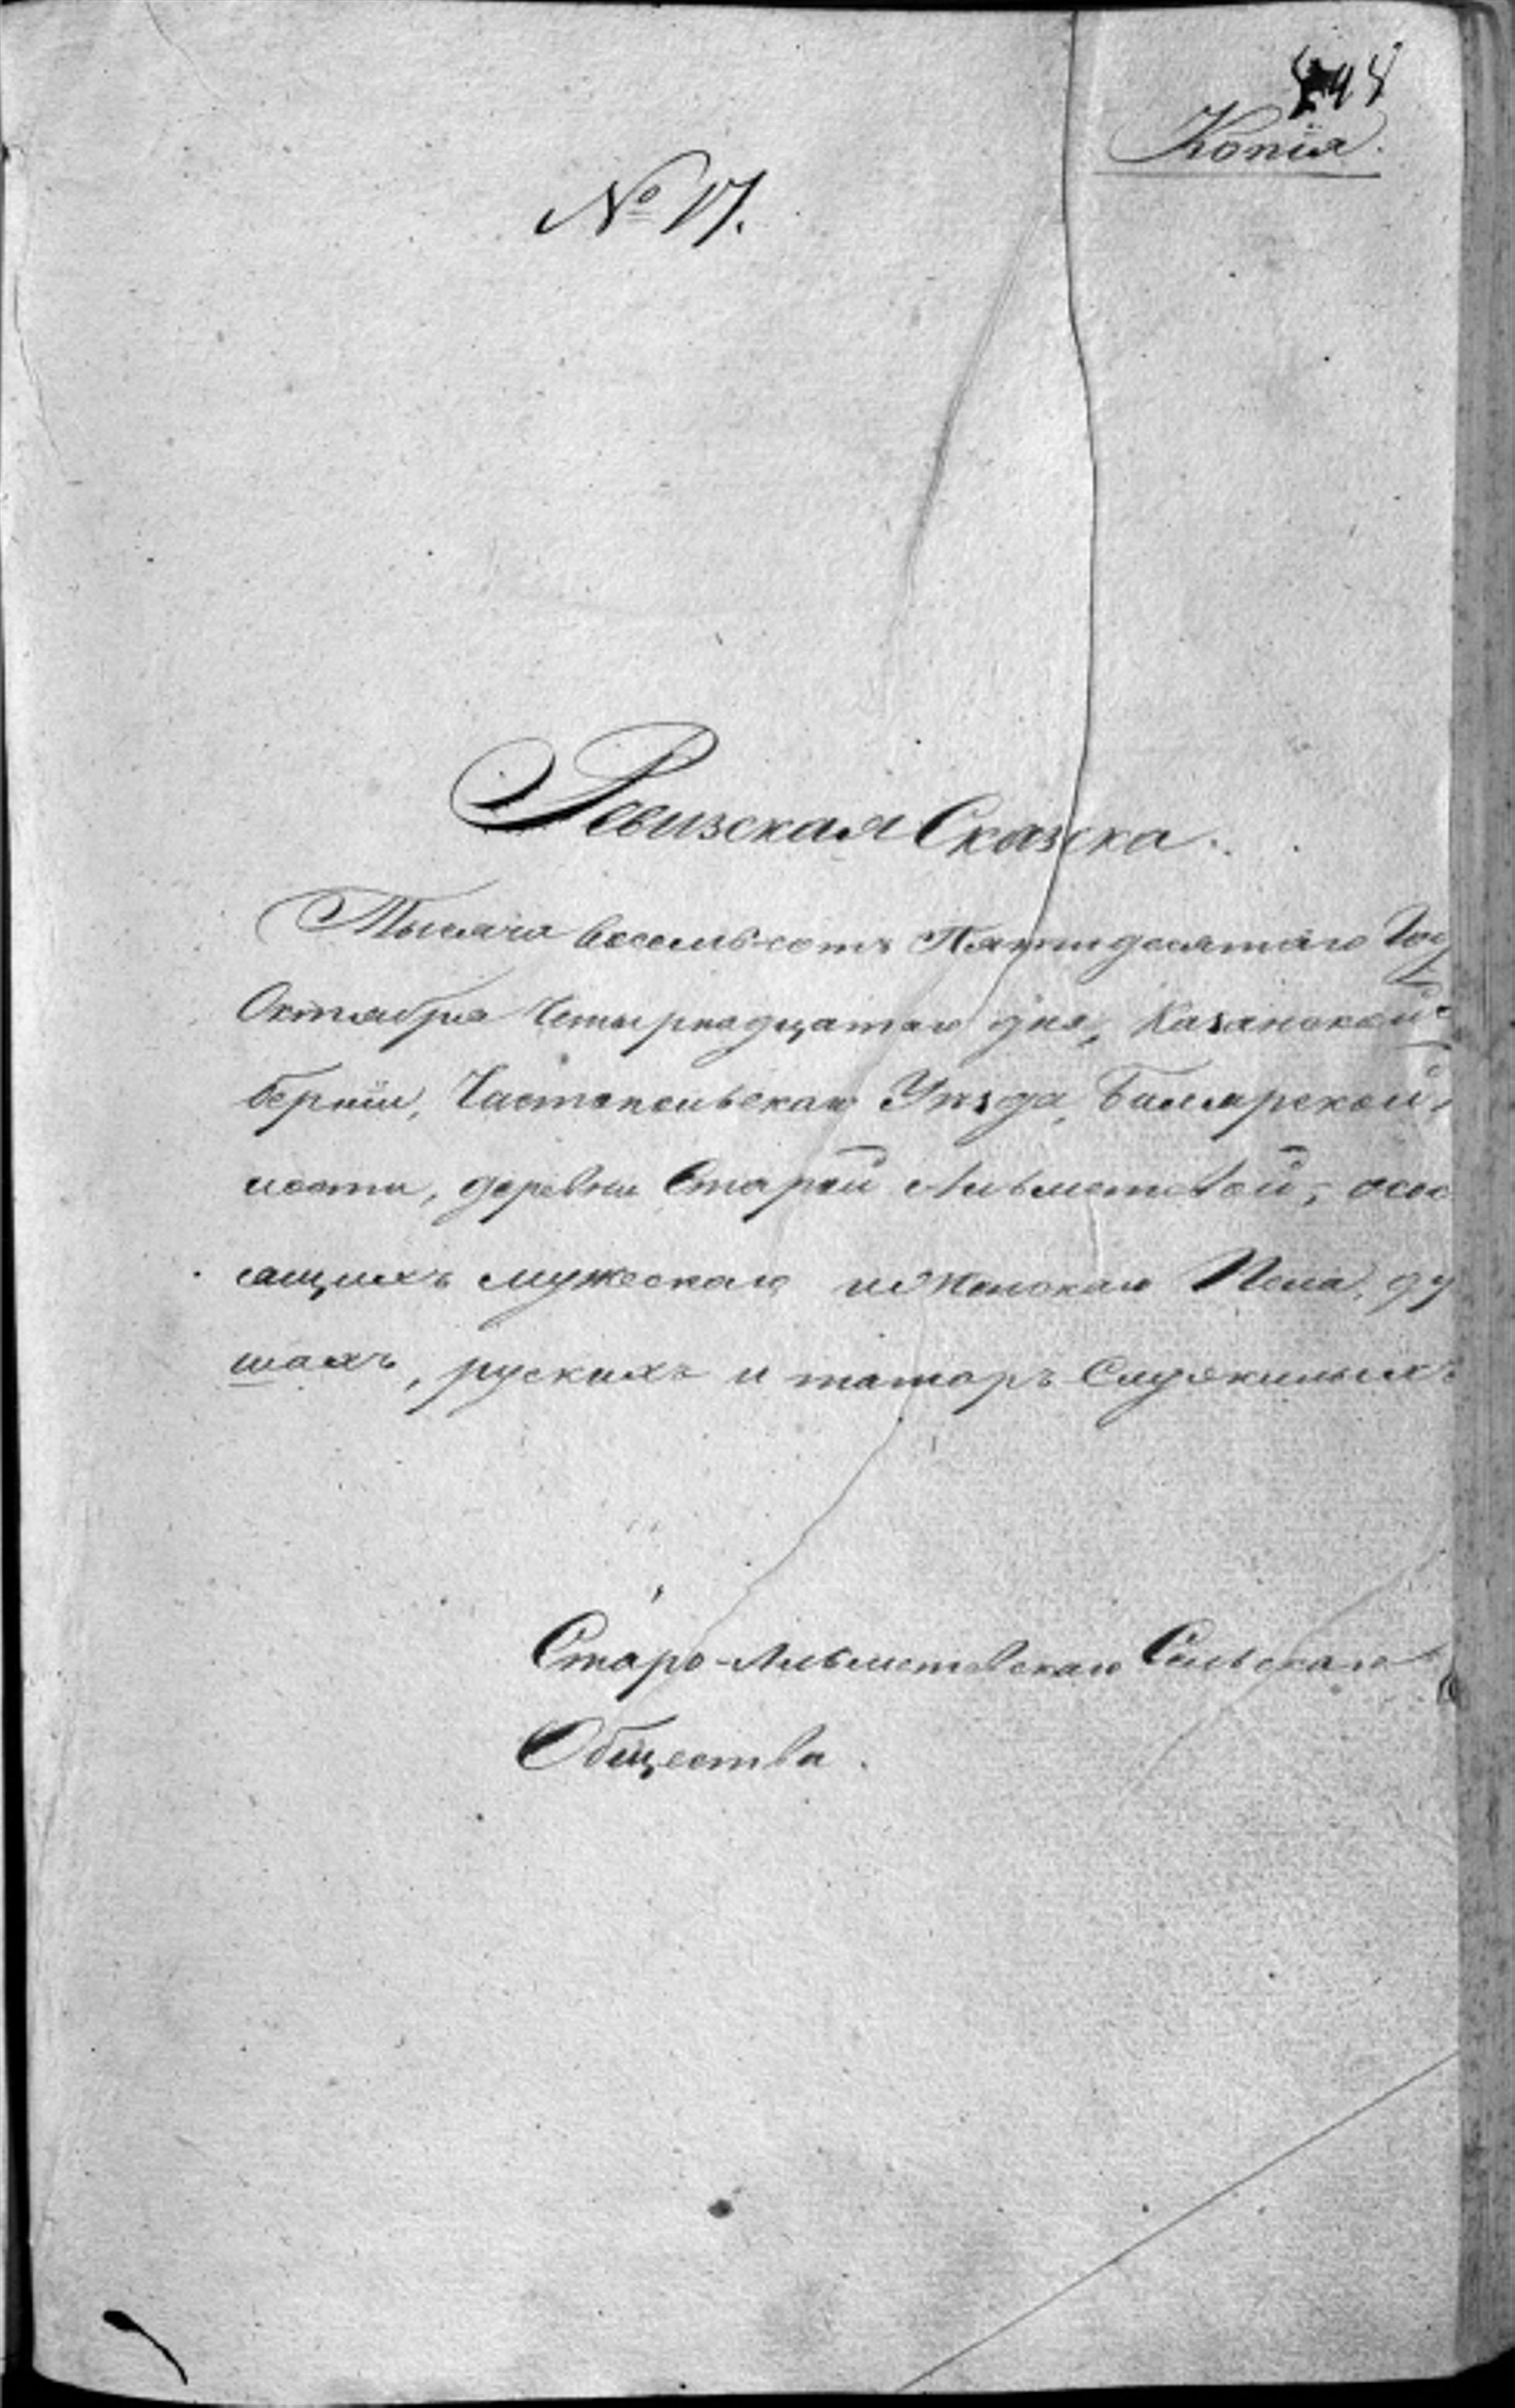 Копія.
№ 17.
Ревизская Сказка.
Тысяча восемь сотъ Пятидесятаго Год
Октября Четырнадцатаго дня, Казанской
берніи, Чистопольскаго Уѣзда, Билярской
лости, деревни Старой Альметевой, о
сащихъ мужескаго и Женскаго Пола, ду
шахъ, рускихъ и татаръ Служилыхъ
Старо-Альметевскаго Сельскаго
Общества.